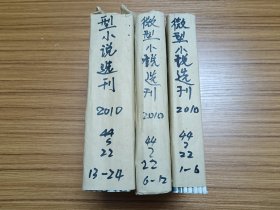 型小说选刊
2010
44
5
22
13-24
微型小说选刊
2010
44
2
22
6-12
微型小说选刊
2010
44
2
22
1-6